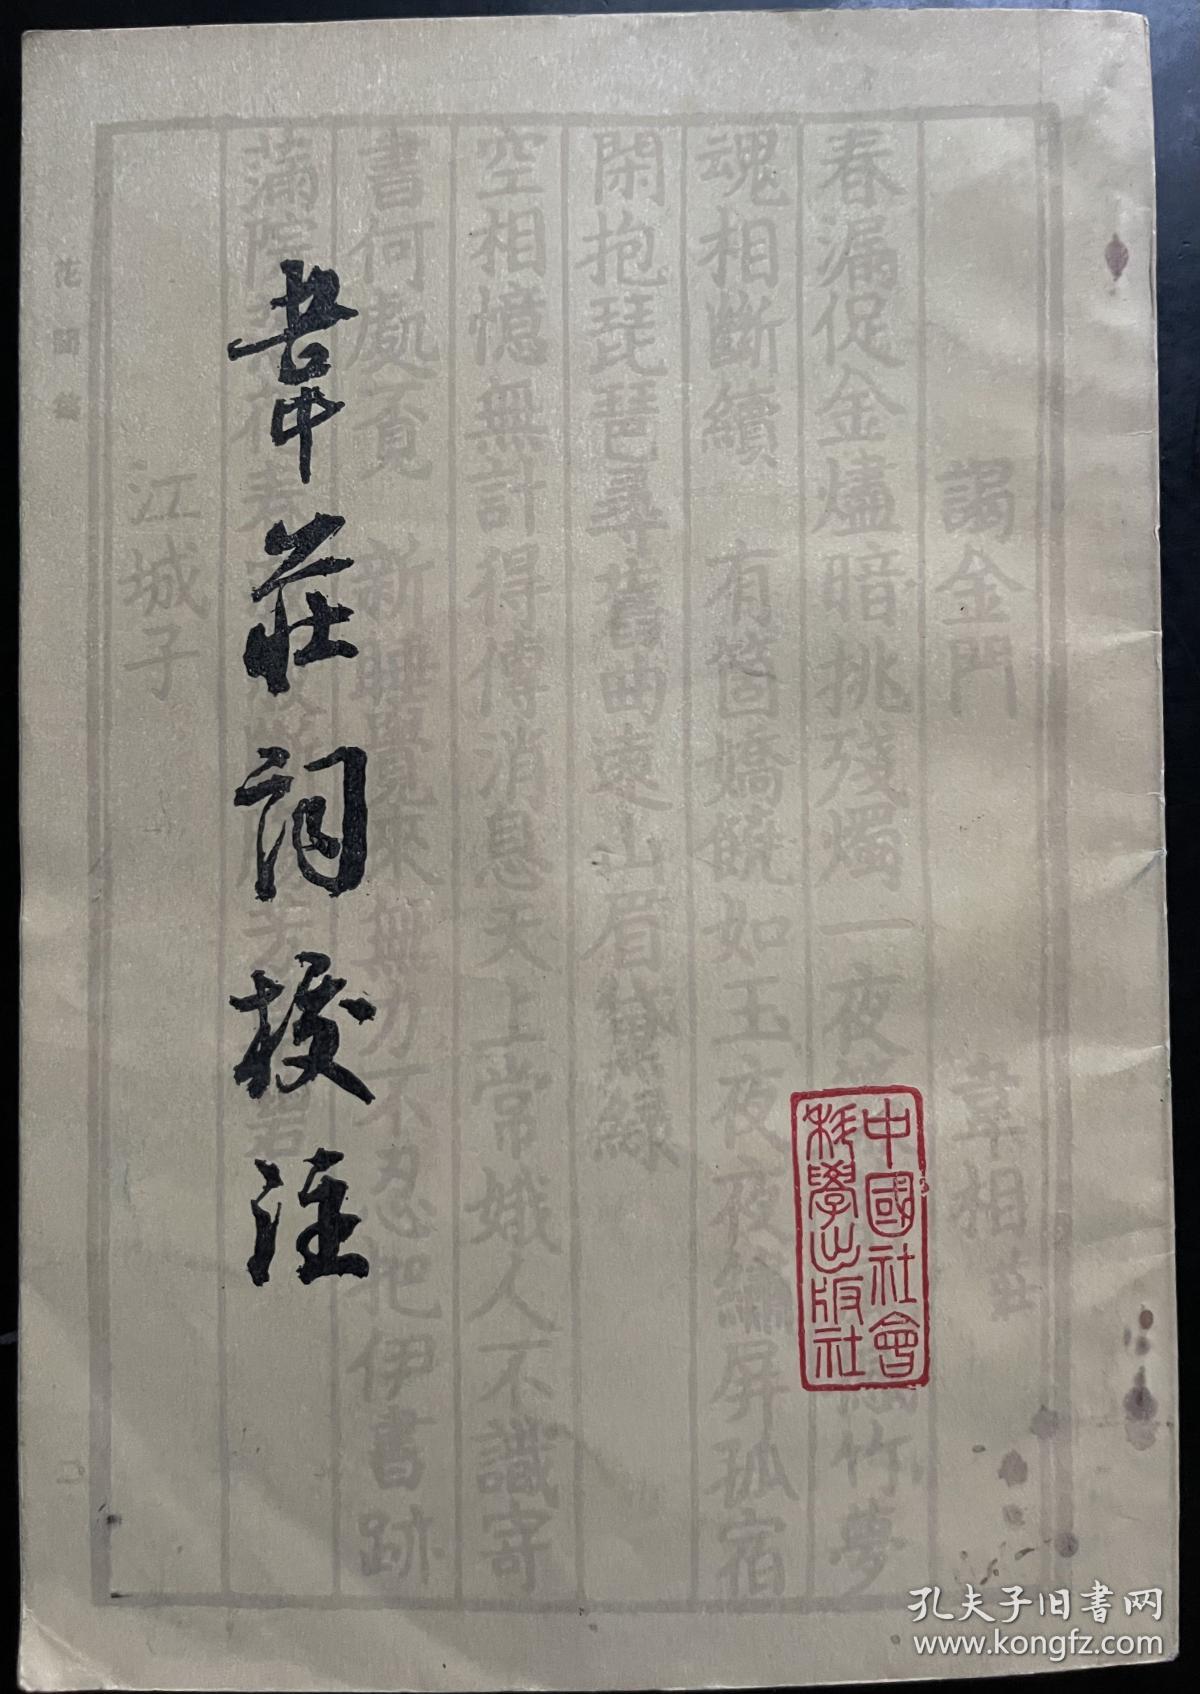 謁金門
韋相莊
春漏促金燼暗挑殘燭一夜
竹夢
魂相斷續 有箇嬌饒如玉夜夜繡屏孤宿
閑抱琵琶尋舊曲遠山眉黛綠
空相憶無計得傳消息天上常娥人不識寄
書何處覔 新睡覺來無力不忍把伊書跡
滿院
江城子
花間集
二
韋莊詞校注
中國社會
科學出版社
孔夫子旧书网
www.kongfz.com